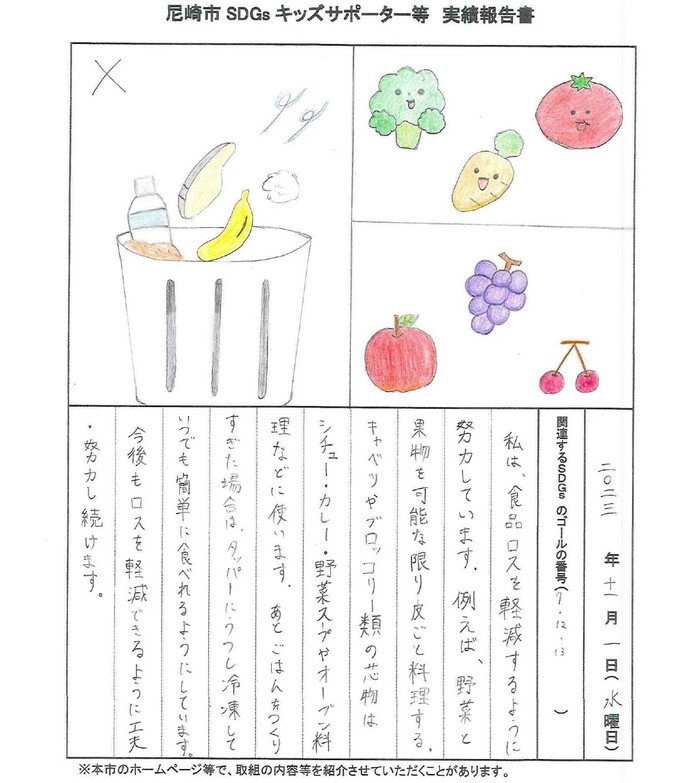 尼崎市 SDGs キッズサポーター等　実績報告書
二〇二三 年 十一 月 一 日( 水 曜日)
関連するSDGs のゴールの番号( 7・12・13 )
私は、食品ロスを軽減するように
努力しています。例えば、野菜と
果物を可能な限り皮ごと料理する。
キャベツやブロッコリー類の芯物は
シチュー・カレー・野菜スープやオーブン料
理などに使います。あとごはんをつくり
すぎた場合は、タッパーにうつし冷凍して
いつでも簡単に食べれるようにしています。
今後もロスを軽減できるように工夫
・努力し続けます。
※本市のホームページ等で、取組の内容等を紹介させていただくことがあります。